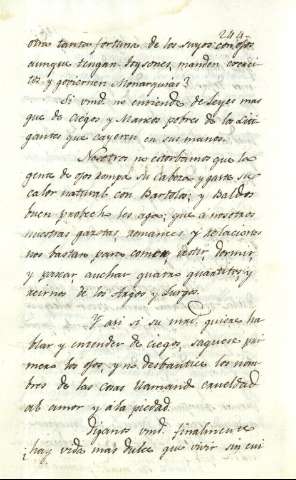 244
otra tanta fortuna de los suyos con ojos
aunque tengan toysones, manden exerci
tos y goviernen Monarquias?
Si vmd. no entiende de Leyes mas
que de Ciegos y Marcos pobres de los Liti
gantes que cayeren en sus manos.
Nosotros no estorbamos que la
gente de ojos rompa su cabeza y gaste su
calor natural con Bartolos, y Baldos
buen probecho les aga; que a nosotros
nuestras gazetas, romances y relaciones
nos bastan para comer, vestir, dormir
y
y reirnos de los Argos y Linzes.
Y asi si su mrd. quiere ha
blar y entender de Ciegos, saquese pri
mero los ojos, y no desbautize los nom
bres de las cosas llamando crueldad
al amor y á la piedad.
Diganos vmd. finalmente
¿hay vida mas dulce que vivir sin cui